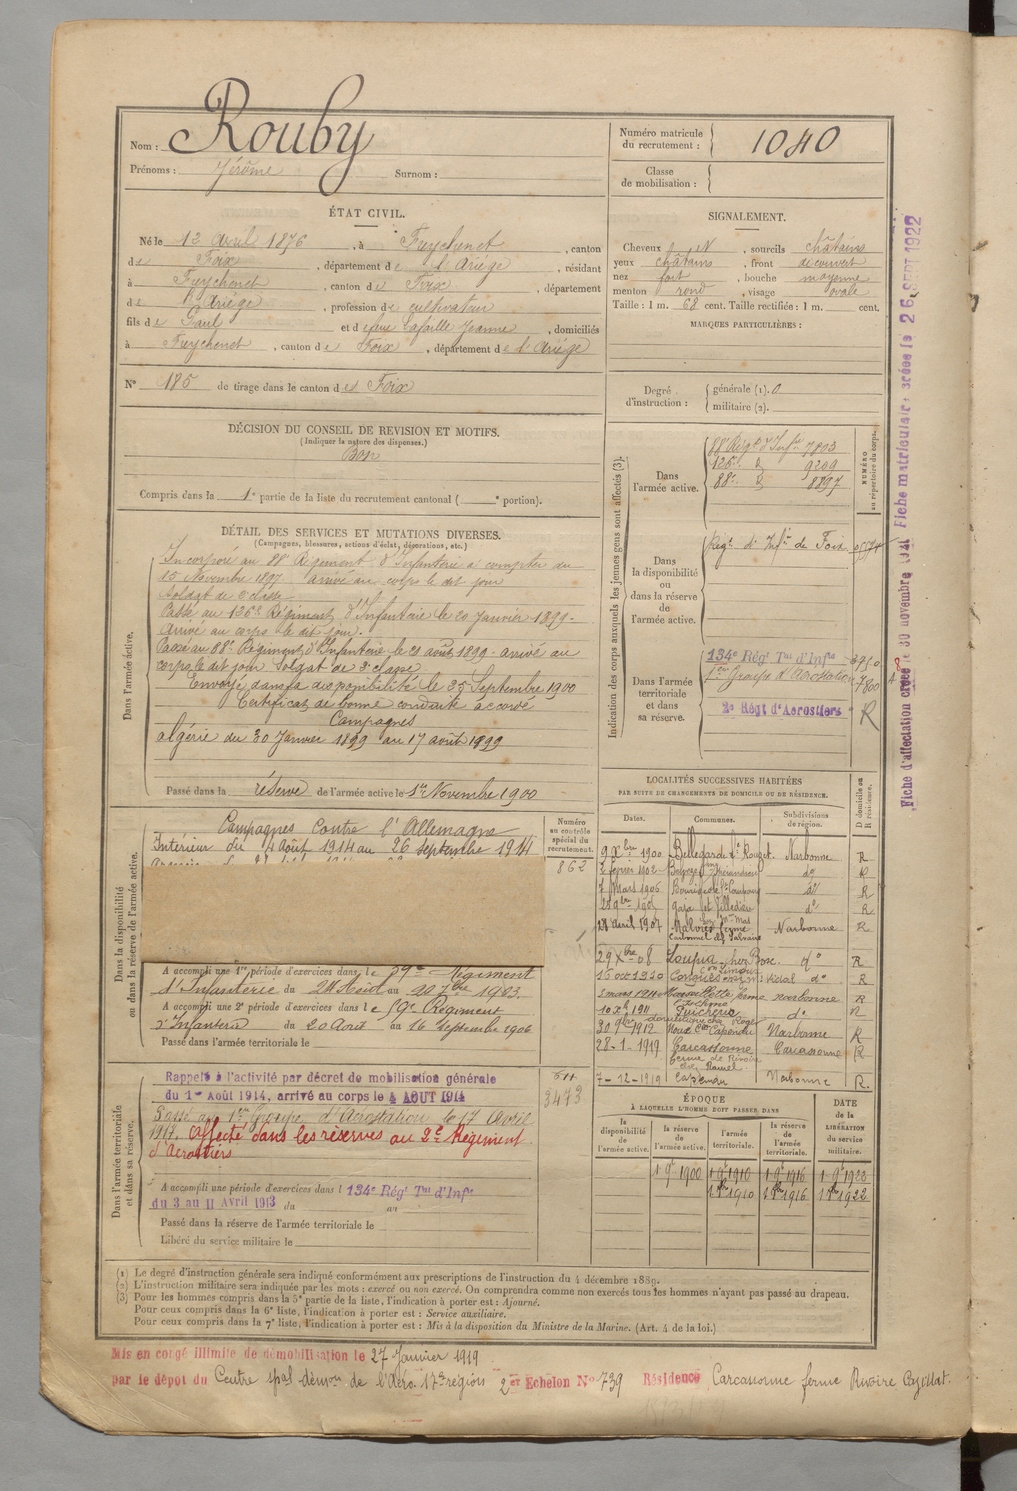 Nom : Rouby
Prénoms : Jérôme Surnom :
Numéro matricule du recrutement : 1040
Classe de mobilisation :
ÉTAT CIVIL.
Né le 12 Avril 1876, à , canton
de Foix, département de l'Ariège, résidant
à , canton de Foix, département
de l'Ariège, profession de cultivateur
fils de Paul et de Jeanne, domiciliés
à , canton de Foix, département de l'Ariège
N° 185 de tirage dans le canton de Foix
SIGNALEMENT.
Cheveux N, sourcils châtains
yeux châtains, front découvert
nez fort, bouche moyenne
menton rond, visage ovale
Taille : 1 m. 68 cent. Taille rectifiée : 1 m. cent.
MARQUES PARTICULIÈRES :
Degré d'instruction : générale (1). 0
militaire (2).
DÉCISION DU CONSEIL DE REVISION ET MOTIFS.
(Indiquer la nature des dispenses.)
Bon
Compris dans la 1e partie de la liste du recrutement cantonal ( e portion).
DÉTAIL DES SERVICES ET MUTATIONS DIVERSES.
(Campagnes, blessures, actions d'éclat, décorations, etc.)
Dans l'armée active.
Incorporé au 88e Régiment d'Infanterie à compter du
15 Novembre 1897 arrivé au corps le dit jour
Soldat de 2e classe
Passé au 126e Régiment d'Infanterie le 20 Janvier 1899.
Arrivé au corps le dit jour.
Passé au 88e Régiment d'Infanterie le août 1899 arrivé au
corps le dit jour Soldat de 2e classe
Envoyé dans la disponibilité le 25 Septembre 1900
Certificat de bonne conduite accordé
Campagnes
Algérie du 30 Janvier 1899 au 17 août 1899
Passé dans la réserve de l'armée active le 1er Novembre 1900
Indication des corps auxquels les jeunes gens sont affectés (3).
NUMÉRO au répertoire du corps.
Dans l'armée active.
88e Régt d'Infie 7803
126e d° 9209
88e d° 8897
Dans la disponibilité ou dans la réserve de l'armée active.
Régt d'Infie de Foix
Dans l'armée territoriale et dans sa réserve.
134e Régt Tal d'Infie 3750
1er Groupe d'Aérostation 7800
2e Régt d'Aerostiers R
LOCALITÉS SUCCESSIVES HABITÉES
PAR SUITE DE CHANGEMENTS DE DOMICILE OU DE RÉSIDENCE.
Dates. Communes. Subdivisions de région. D domicile ou R résidence.
9 Xbre 1900 Narbonne R
février 1902 d° R
7 Mars 1906 d° R
d° R
28 Avril 1907 Narbonne R
29 Xbre 08 Loupia chez d° R
15 oct 1910 d° R
3 mars 1911 Marseillette ferme Narbonne R
1911 Puichéric d° R
30 1912 Capendu Narbonne R
28-1-1919 Carcassonne Carcassonne R
7-12-1919 Capendu Narbonne R.
Dans la disponibilité ou dans la réserve de l'armée active.
Numéro au contrôle spécial du recrutement.
862
Campagnes contre l'Allemagne
Intérieur du 4 Août 1914 au 26 septembre 1914
A accompli une 1re période d'exercices dans le 59e Régiment
d'Infanterie du 24 Août au 20 7bre 1903.
A accompli une 2e période d'exercices dans le 59e Régiment
d'Infanterie du 20 Août au 16 Septembre 1906
Passé dans l'armée territoriale le
Dans l'armée territoriale et dans sa réserve.
Rappelé à l'activité par décret de mobilisation générale
du 1er Août 1914, arrivé au corps le 4 AOUT 1914
3473
Passé au 1er Groupe d'Aérostation le 17 Avril
1917. Affecté dans les réserves au 2e Régiment
d'Aérostiers
A accompli une période d'exercices dans l 134e Régt Tal d'Infie
du 3 au 11 Avril 1913 du au
Passé dans la réserve de l'armée territoriale le
Libéré du service militaire le
ÉPOQUE
À LAQUELLE L'HOMME DOIT PASSER DANS
la disponibilité de l'armée active. la réserve de l'armée active. l'armée territoriale. la réserve de l'armée territoriale. DATE de la LIBÉRATION du service militaire.
1 9bre 1900 1 9bre 1910 1 9bre 1916 1 9bre 1923
1 8bre 1910 1 8bre 1916 1 8bre 1922
(1) Le degré d'instruction générale sera indiqué conformément aux prescriptions de l'instruction du 4 décembre 1889.
(2) L'instruction militaire sera indiquée par les mots : exercé ou non exercé. On comprendra comme non exercés tous les hommes n'ayant pas passé au drapeau.
(3) Pour les hommes compris dans la 5e partie de la liste, l'indication à porter est : Ajourné.
Pour ceux compris dans la 6e liste, l'indication à porter est : Service auxiliaire.
Pour ceux compris dans la 7e liste, l'indication à porter est : Mis à la disposition du Ministre de la Marine. (Art. 4 de la loi.)
Mis en congé illimité de démobilisation le 27 Janvier 1919
par le dépot du Centre spal démon de l'Aéro. 17e région 2e Echelon N° 739 Résidence Carcassonne ferme Rivoire
Fiche d'affectation créée le 30 novembre Fiche matriculaire créée le 26 SEPT 1922